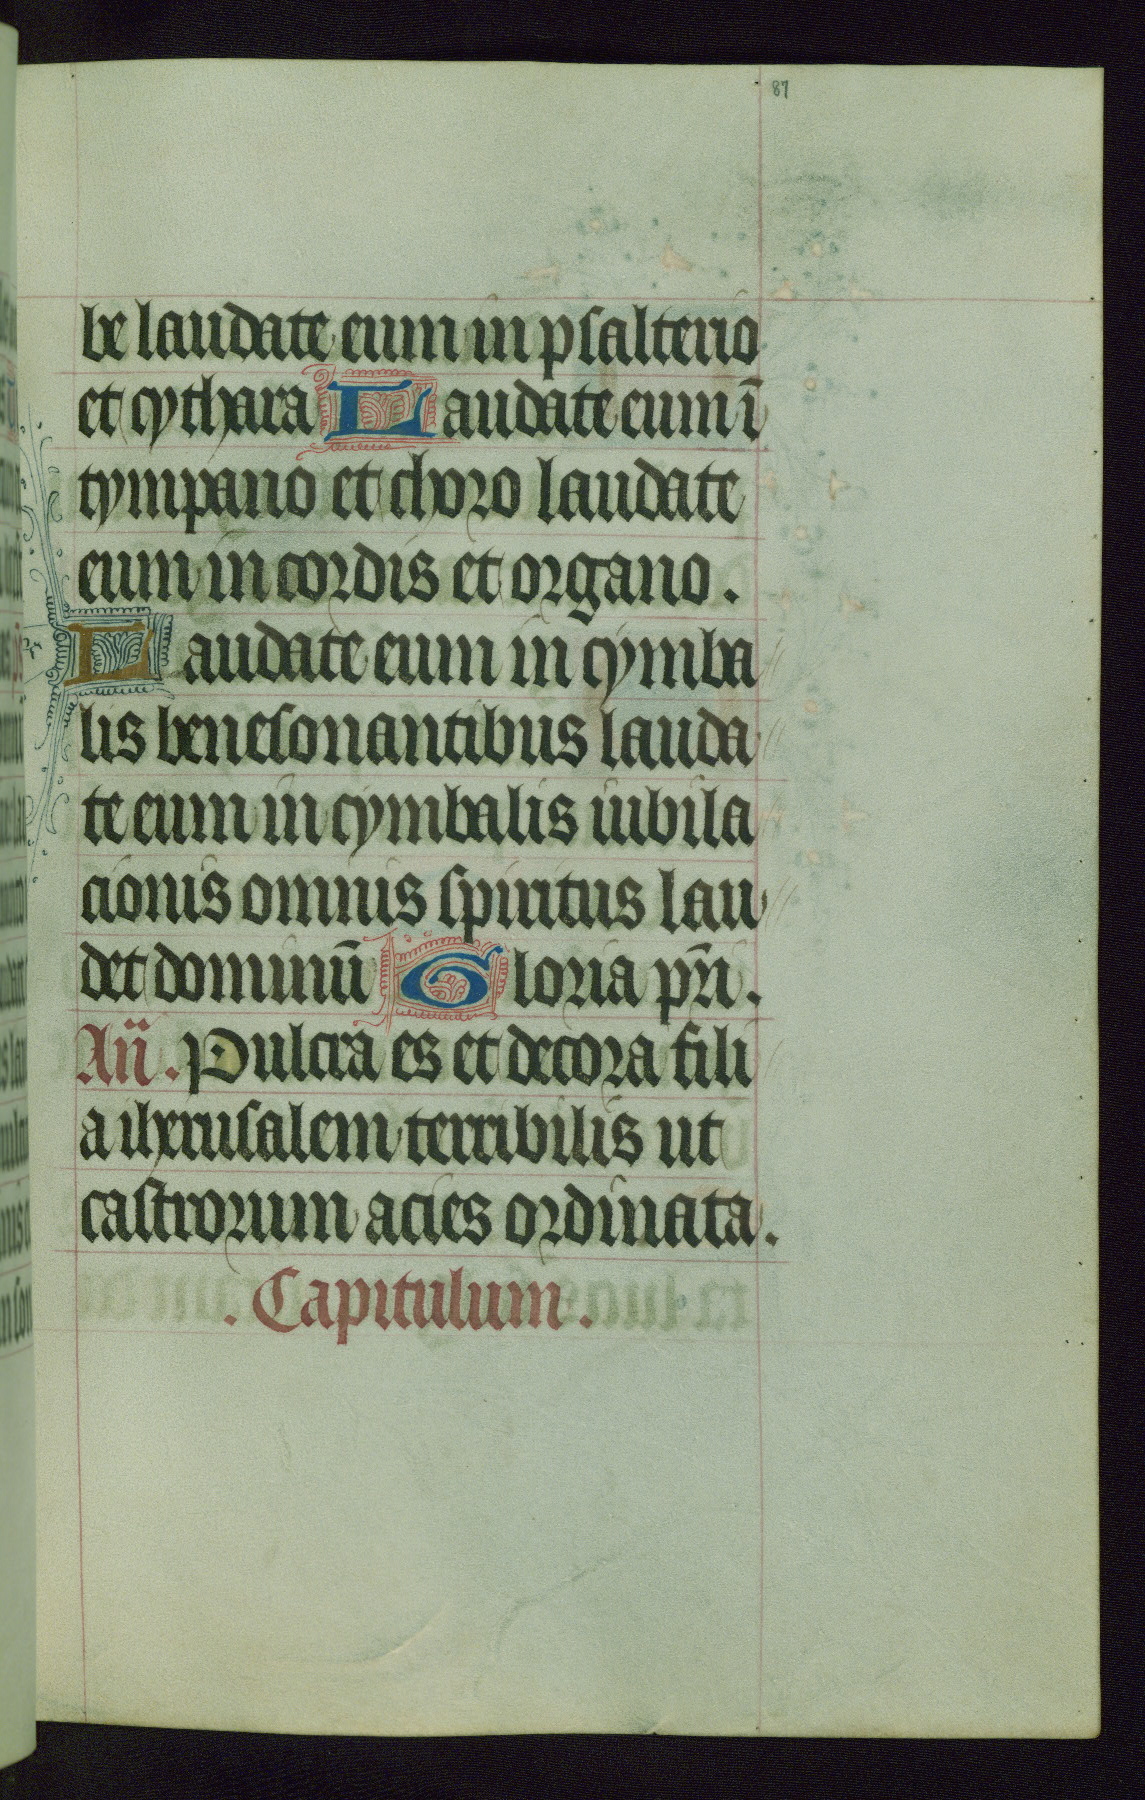 87
be laudate eum in psalterio
et cythara Laudate eum ī
tympano et choro laudate
eum in cordis et organo.
Laudate eum in cymba
lis benesonantibus lauda
te eum in cymbalis iubila
cionis omnis spiritus lau
det dominū Gloria pr̄i.
An̄. Pulcra es et decora fili
a iherusalem terribilis ut
castrorum acies ordinata.
. Capitulum .